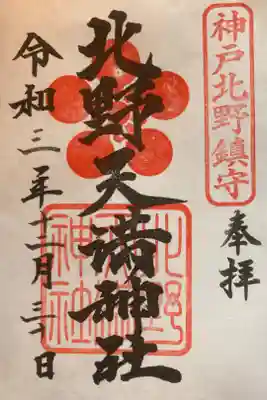 神戸北野鎮守
奉拝
北野天満神社
令和三年十二月三十日
北野天満神社